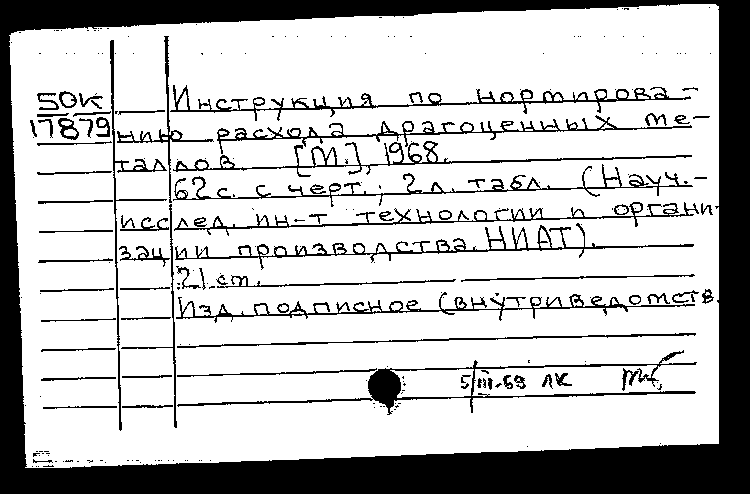 50К
17879
Инструкция по нормирова-
нию расхода драгоценных ме-
таллов. [М.], 1968.
62 с. с черт.; 2 л. табл. (Науч.-
исслед. ин-т технологии и органи-
зации производства. НИАТ).
21 см.
Изд. подписное (внутриведомств.
5/III-69 ЛК